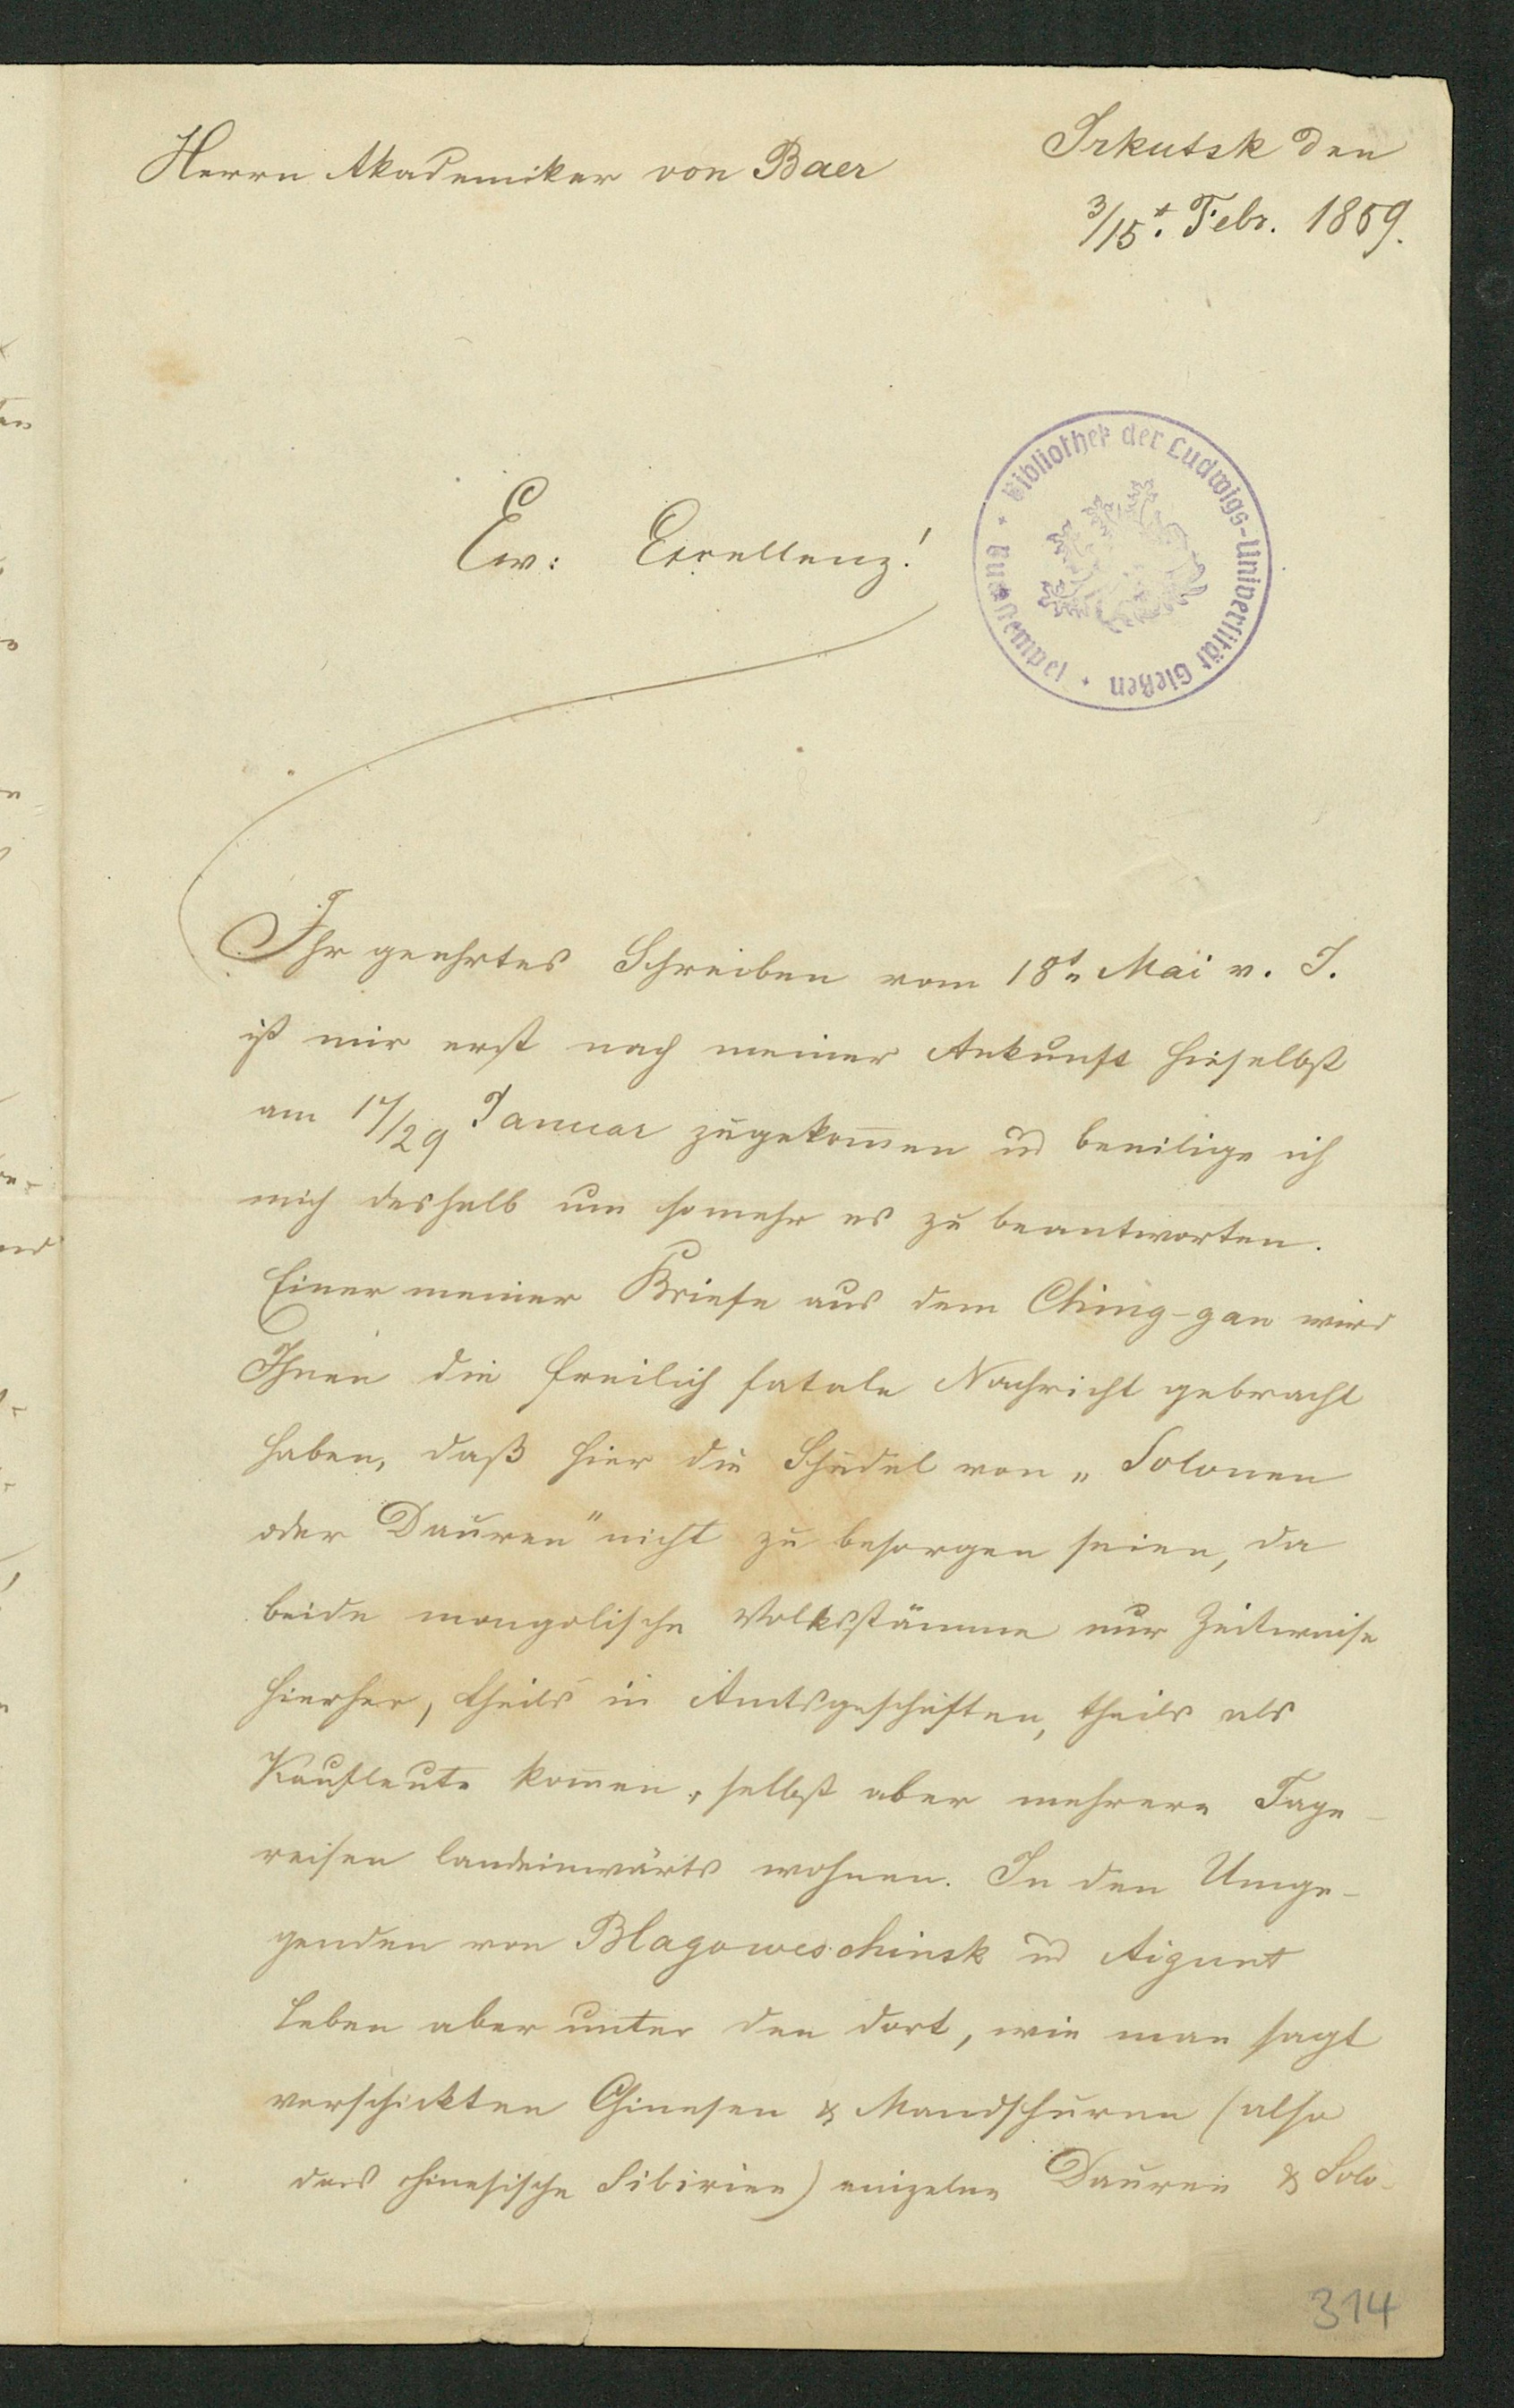 Herrn Akademiker von Baer
Irkutsk den
3/15t. Febr. 1859.
Bibliothek der Ludwigs-Universität Gießen
Ew: Excellenz!
Ihr geehrtes Schreiben vom 18t. Mai v. J.
ist mir erst nach meiner Ankunft hieselbst
am 17/29 Januar zugekom̅en u beeilige ich
mich deshalb um somehr es zu beantworten.
Einer meiner Briefe aus dem Ching-gan wird
Ihnen die freilich fatale Nachricht gebracht
haben, daß hier die Schädel von „Solonen
oder Dauren" nicht zu besorgen seien, da
beide mongolische Volksstämme nur Zeitweise
hierher, theils in Amtsgeschäften, theils als
Kaufleute kom̅en, selbst aber mehrere Tage-
reisen landeinwärts wohnen. In den Umge-
genden von Blagoweschinsk u Aigunt
leben aber unter den dort, wie man sagt
verschickten Chinesen & Mandschuren (also
das chinesische Sibirien) einzelne Dauren & Solo-
314